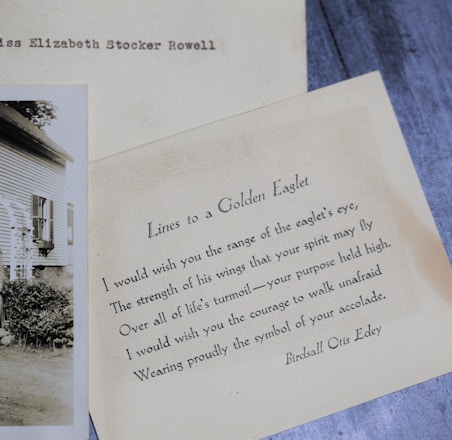 iss Elizabeth Stocker Rowell
Lines to a Golden Eaglet
I would wish you the range of the eaglet's eye,
The strength of his wings that your spirit may fly
Over all of life's turmoil—your purpose held high.
I would wish you the courage to walk unafraid
Wearing proudly the symbol of your accolade.
Birdsall Otis Edey